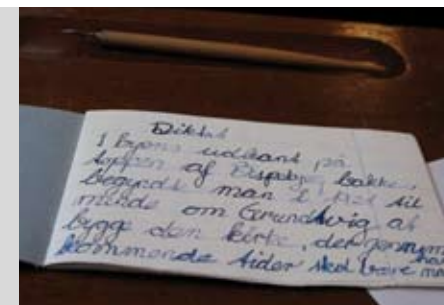 Diktat
I byens udkant på
toppen af Bispebjerg Bakke,
begyndte man i til
minde om Grundtvig at
bygge den kirke, der gennem
kommende tider skal være